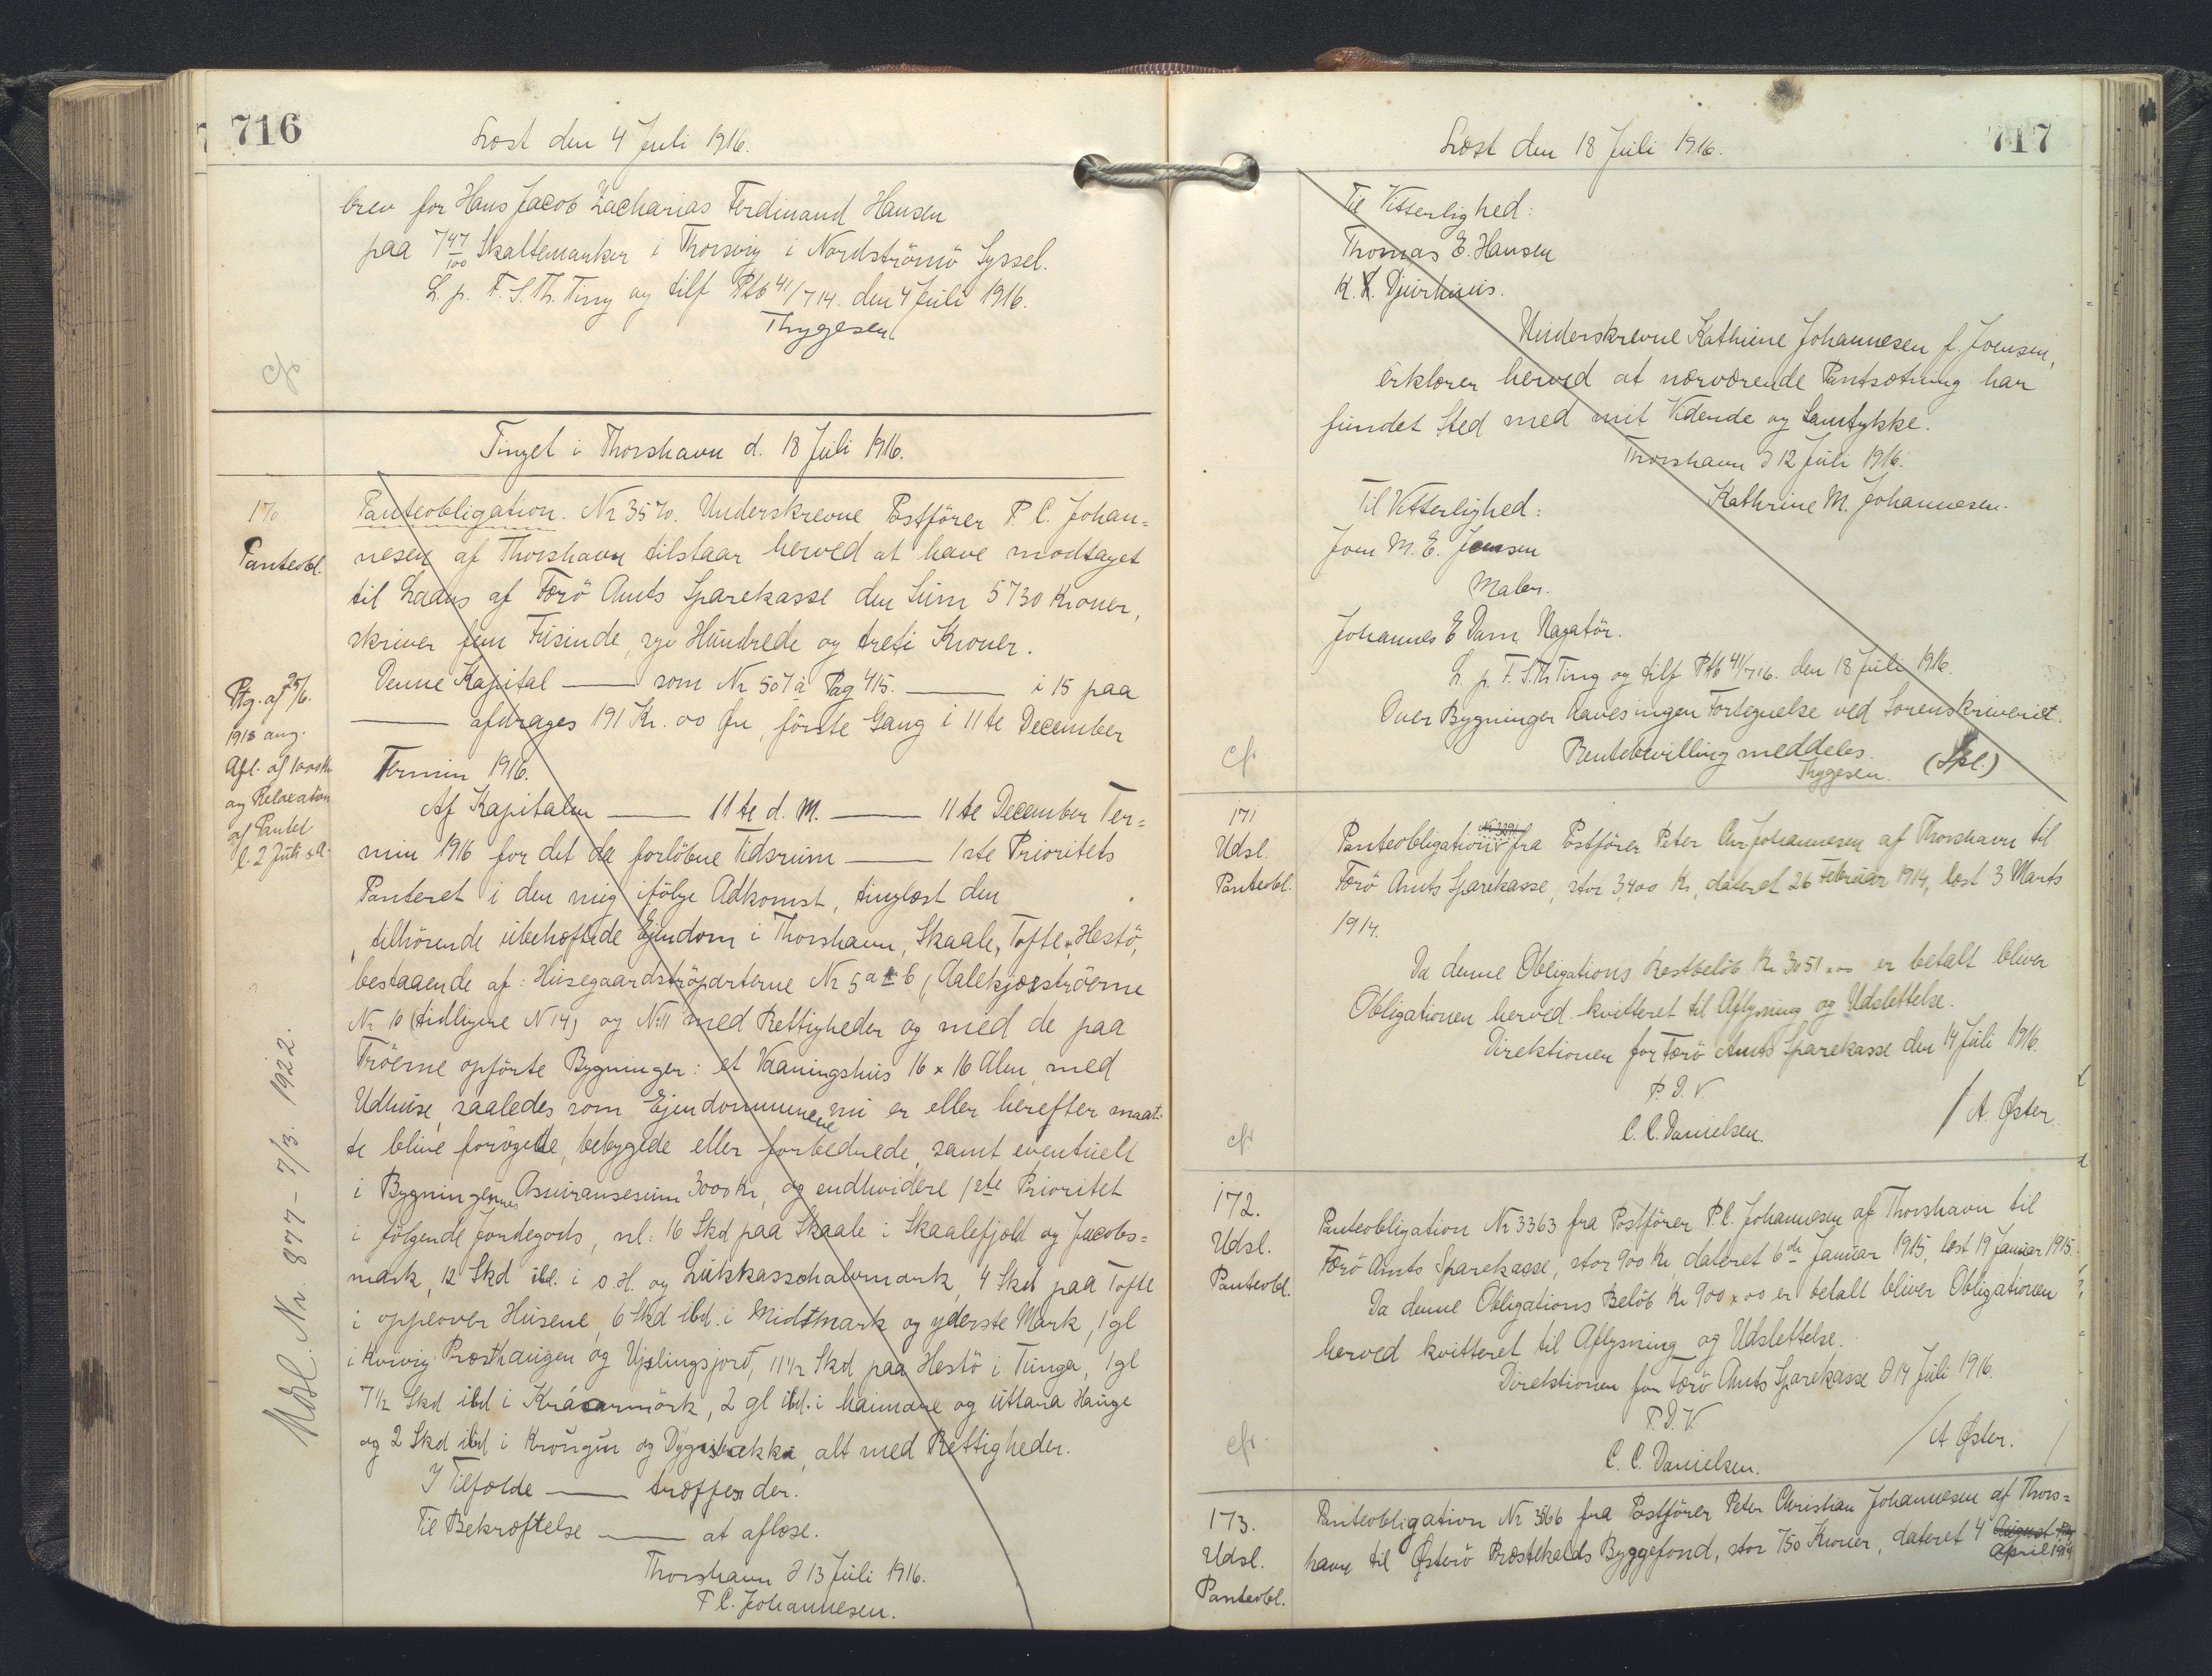 716
Læst den 4 Juli 1916.
brev for Hans Jacob Zacharias Ferdinand Hansen
paa 7 47/100 Skattemarker i Thorsvig i Nordströmö Syssel.
L. p. F. S. Th. Ting og tilf Ptb 41/714. den 4 Juli 1916.
Thygesen
cfr
Tinget i Thorshavn d. 18 Juli 1916.
170
Panteobl.
Panteobligation. Nr 3570. Underskrevne Postförer P. C. Johan=
nesen af Thorshavn tilstaar herved at have modtaget
til Laans af Færö Amts Sparekasse den Sum 5730 Kroner,
skriver fem Tusinde, syv Hundrede og treti Kroner.
Denne Kapital — som Nr 507 a Pag 415. — i 15 paa
— afdrages 191 Kr. 00 Øre, förste Gang i 11te December
Termin 1916.
Af Kapitalen — 11te d. M. — 11te December Ter=
min 1916 for det da forlöbne Tidsrum — 1ste Prioritets
Panteret i den mig ifölge Adkomst, tinglæst den
, tilhörende ubehæftede Ejendom i Thorshavn, Skaale, Tofte, Hestö,
bestaaende af: Husegaardströparterne Nr 5 a & b, Aalekjærströerne
Nr 10 (tidligere N 14) og Nr 11 med Rettigheder og med de paa
Tröerne opförte Bygninger: et Vaaningshus 16 x 16 Alen, med
Udhuse, saaledes som Ejendommene nu er eller herefter maat=
te blive forögede, bebyggede eller forbedrede, samt eventuelt
i Bygningernes Assuransesum 3000 Kr, og endhvidere 1ste Prioritet
i fölgende Jordegods, nl: 16 Skd paa Skaale i Skaalefjold og Jacobs=
mark, 12 Skd ibd. i o. H. og Lukkassehalvmark, 4 Skd paa Tofte
i oppeover Husene, 6 Skd ibd. i Midtmark og yderste Mark, 1 gl
i Kvivig Præsthaugen og Ujslingsjord, 11 1/2 Skd paa Hestö i Tunga, 1 gl
7 1/2 Skd ibd i Kráarmörk, 2 gl ibd. i haimara og uttara Hauge
og 2 Skd ibd i Krougun og alt med Rettigheder.
I Tilfælde — træffes der.
Til Bekræftelse — at aflæse.
Thorshavn d 13 Juli 1916.
P C. Johannesen.
Ptg. af 25/6.
1918 ang.
Afl. af 1000 Kr
og Relaxation
af Pantet
l. 2 Juli s. A.
Udsl. Nr. 877 - 7/3. 1922.
717
Læst den 18 Juli 1916.
Til Vitterlighed:
Thomas E. Hansen
K. Djurhuus.
Underskrevne Kathrine Johannesen f. Joensen,
erklærer herved at nærværende Pantsætning har
fundet Sted med mit Vidende og Samtykke.
Thorshavn d 12 Juli 1916.
Kathrine M. Johannesen.
Til Vitterlighed:
Joen M. E. Jensen
Maler.
Johannes E Dam Nagatör.
L. p. F. S. Th. Ting og tilf Ptb 41/716. den 18 Juli 1916.
Over Bygninger haves ingen Fortegnelse ved Sorenskriveriet.
Rentebevilling meddeles.
Thygesen. (Spl.)
cfr
171
Udsl.
Panteobl.
Nr 3291
Panteobligation fra Postförer Peter Chr. Johannesen af Thorshavn til
Færö Amts Sparekasse, stor 3,400 Kr, dateret 26 Februar 1914, læst 3 Marts
1914.
Da denne Obligations Restbelöb Kr 3051 x 00 er betalt bliver
Obligationen herved kvitteret til Aflysning og Udslettelse.
Direktionen for Færö Amts Sparekasse den 14 Juli 1916.
P. D. V.
C. C. Danielsen. / A. Øster.
cfr
172.
Udsl.
Panteobl.
Panteobligation Nr 3363 fra Postförer P. C. Johannesen af Thorshavn til
Færö Amts Sparekasse, stor 900 Kr, dateret 6de Januar 1915, læst 19 Januar 1915.
Da denne Obligations Belöb Kr 900 x 00 er betalt bliver Obligationen
herved kvitteret til Aflysning og Udslettelse.
Direktionen for Færö Amts Sparekasse d 14 Juli 1916.
P. D. V
C. C. Danielsen. / A Øster. /
cfr
173.
Udsl.
Panteobl.
Panteobligation Nr 3566 fra Postförer Peter Christian Johannesen af Thors=
havn til Österö Præstekalds Byggefond, stor 750 Kroner, dateret 4 August
April 1914